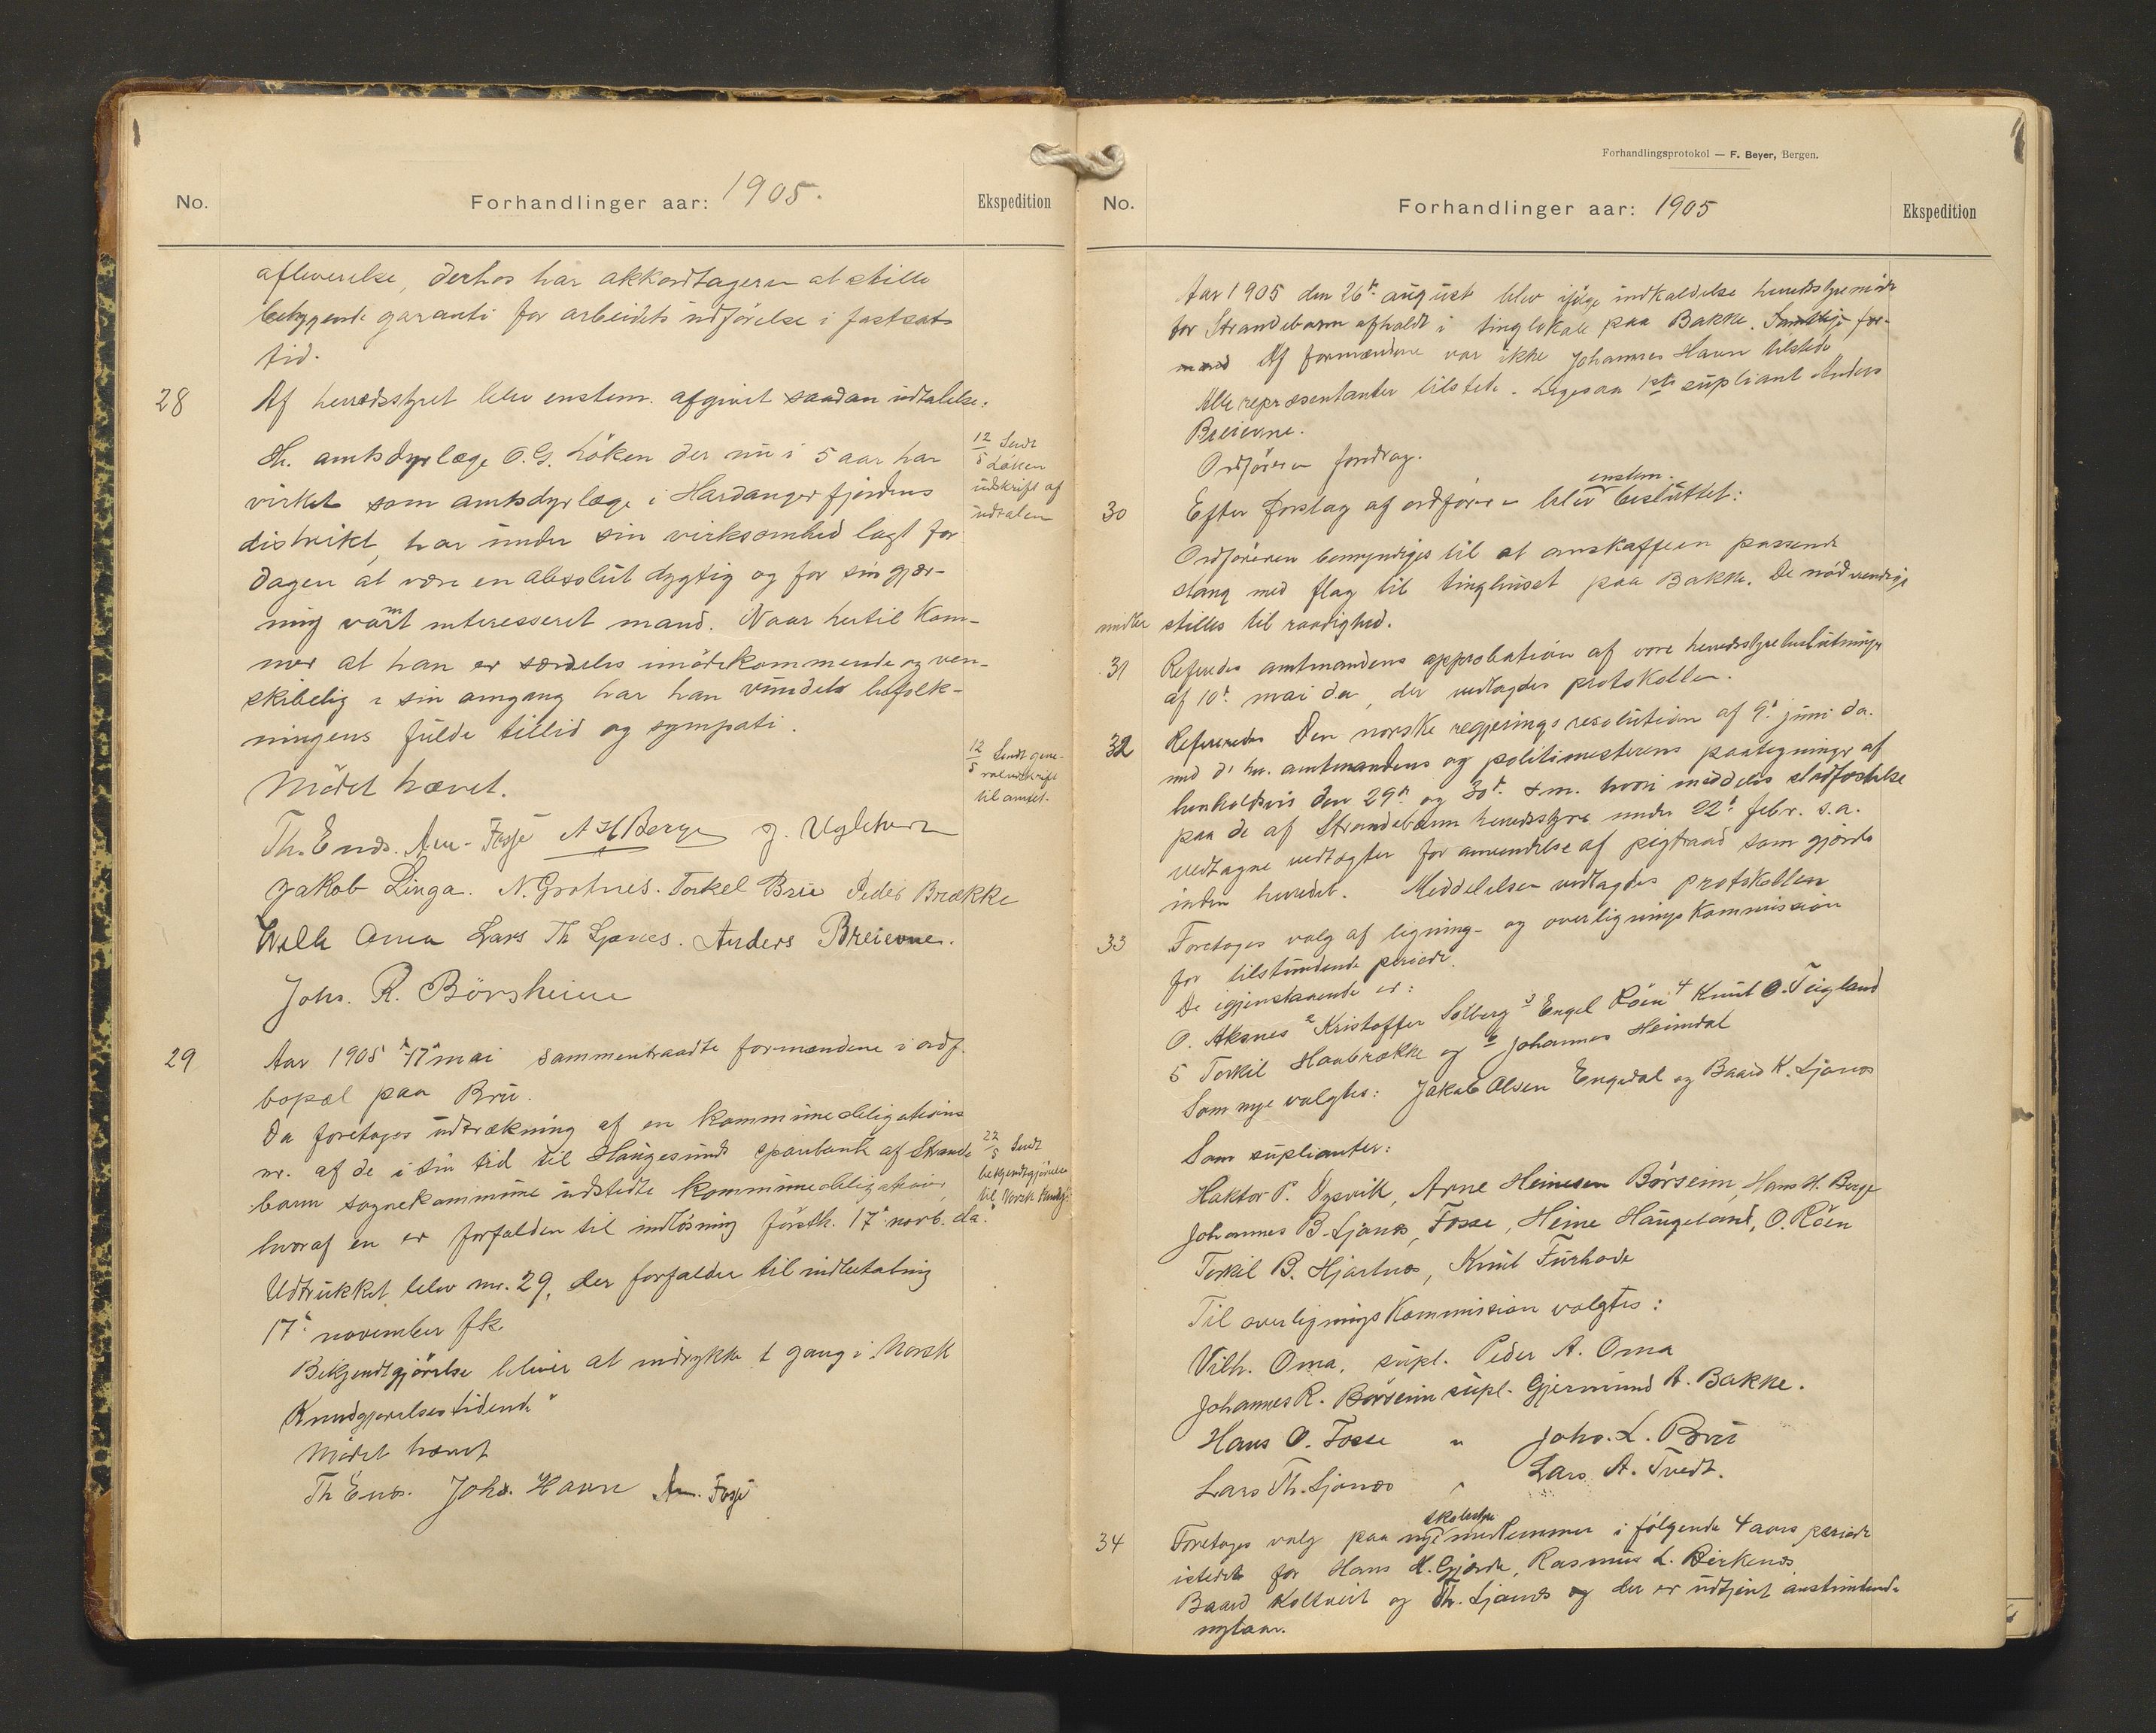 No.
Forhandlinger aar: 1905.
Ekspedition
afleverelse, derhos har akkordtageren at stille
betryggende garanti for arbeidets udförelse i fastsat
tid.
28
Af herredsstyret blev enstem. afgivet saadan udtalelse:
Hr. amtsdyrlæge O. G. Löken der nu i 5 aar har
virket som amtsdyrlæge i Hardangerfjordens
distrikt, har under sin virksomhed lagt for
dagen at være en absolut dygtig og for sin gjær-
ning varmt interesseret mand. Naar hertil kom-
mer at han er særdeles imödekommende og ven-
skabelig i sin omgang har han vundet befolk-
ningens fulde tillid og sympati.
Mödet hævet.
12/5 Sendt
Löken
udskrift af
udtalen
12/5 Sendt gene-
raludskrift
til amtet.
Th. Enes. Arne Fosse A H Berge J. Ugletvern
Jakob Linga. N. Grotnes. Torkel Brue Peder Brække
Wilh Oma Lars Th Ljones. Anders Breievne.
Johs. R. Börsheim
29
Aar 1905 17de mai sammentraadte formændene i ordf.
bopæl paa Bru.
Da foretoges udtrækning af en kommuneobligations
nr. af de i sin tid til Haugesunds sparebank af Strande
barm sognekommune udstedte kommuneobligationer,
hvoraf en er forfalden til indlösning förstk. 17de novb. da.
Udtrukket blev nr. 29, der forfalder til indbetaling
17de november fk.
Bekjendtgjörelse bliver at indrykke 1 gang i "Norsk
Kundgjörelsestidende"
Mödet hævet
22/5 Sendt
bekjendtgjörelse
til Norsk Kundgj.
Th Enes. Johs. Havn Arne Fosse
Forhandlingsprotokol — F. Beyer, Bergen.
No.
Forhandlinger aar: 1905
Ekspedition
Aar 1905 den 26de august blev ifölge indkaldelse herredsstyremöde
for Strandebarm afholdt i tinglokale paa Bakke. Samtlige for-
mænd Af formændene var ikke Johannes Havn tilstede
Alle repræsentanter tilstede. Ligesaa 1ste supliant Anders
Breievne.
Ordföreren foredrog.
30
Efter forslag af ordförer - blev enstem. besluttet:
Ordföreren bemyndiges til at anskaffe en passende
stang med flag til tinghuset paa Bakke. De nödvendige
midler stilles til raadighed.
31
Referedes amtmandens approbation af vore herredsstyrebeslutninger
af 10de mai da, der vedtoges protokollen.
32
Refereredes Den norske regjerings resolution af 9de juni da.
med d'hr. amtmandens og politimesterens paategninger af
henholdsvis den 29de og 30te s.m. hvori meddeles stadfæstelse
paa de af Strandebarm herredsstyre under 22de febr. s.a.
vedtagne vedtægter for anvendelse af pigtraad som gjærde
inden herredet. Meddelelsen vedtoges protokollen
33
Foretoges valg af ligning- og overligningskommission
for tilstundende periode.
De igjenstaaende er:
O. Aksnes 2 Kristoffer Solberg 3 Engel Röen 4 Knut O. Teigland
5 Torkil Haabrække og 6 Johannes Heimdal
Som nye valgtes: Jakob Olsen Engedal og Baard K. Ljones
Som suplianter:
Haktor P. Vysvik, Arne Heinesen Börseim, Hans H. Berge
Johannes B. Ljones, Fosse, Heine Haugeland, O. Röen
Torkil B. Hjartnes, Knut Furhovde
Til overligningskommission valgtes:
Vilh. Oma, supl. Peder A. Oma
Johannes R. Börseim supl. Gjermund A. Bakke.
Hans O. Fosse " Johs. L. Bru
Lars Th. Ljones " Lars A. Tvedt.
34
Foretoges valg paa nye skolestyre medlemmer i fölgende 4 aars periode
istedet for Hans H. Gjerde, Rasmus L. Birkenes,
Baard Koltveit og Th. Ljones og der er udtjent anstundende
nytaar.